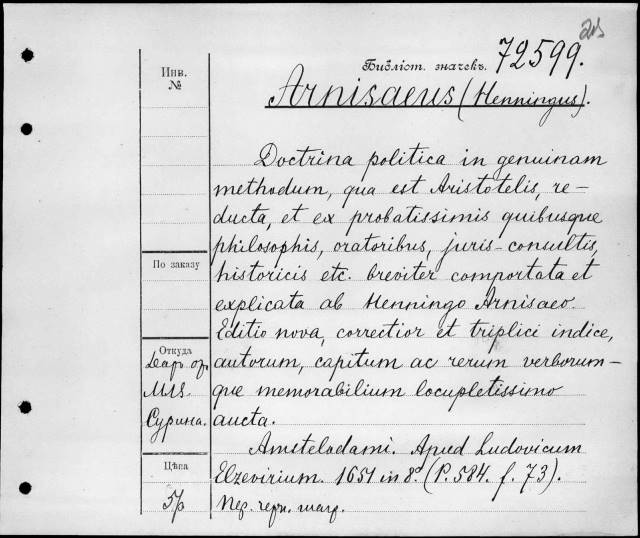 Инв.
№
Библіот. значекъ. 72599.
Arnisaeus (Henningus).
Doctrina politica in genuinam
methodum, qua est Aristotelis, re-
ducta, et ex probatissimis quibusque
philosophis, oratoribus, juris-consultis,
historicis etc. breviter comportata et
explicata ab Henningo Arnisaeo.
Editio nova, correctior et triplici indice,
autorum, capitum ac rerum verborum-
que memorabilium locupletissimo
aucta.
Amstelodami. Apud Ludovicum
Elzevirium. 1651 in 8.º (P. 584. f. 73).
По заказу
Откуда
Сурина.
Цѣна
5р